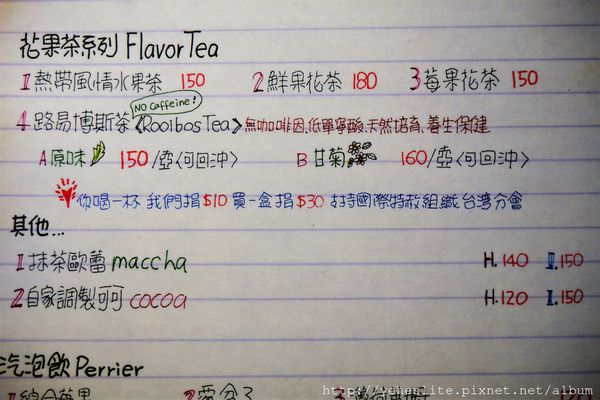 花果茶系列 Flavor Tea
1 熱帶風情水果茶 150 2 鮮果花茶 180 3 莓果花茶 150
NO Caffeine!
4 路易博斯茶〈Rooibos Tea〉無咖啡因、低單寧酸、天然培育、養生保健
A 原味 150/壺〈可回沖〉 B 甘菊 160/壺〈可回沖〉
你喝一杯 我們捐$10 買一盒 捐$30 支持國際特赦組織台灣分會
其他...
1 抹茶歐蕾 maccha H. 140 I. 150
2 自家調製可可 cocoa H. 120 I. 150
汽泡飲 Perrier
1 綜合莓果 2 3
http://yeheslite.pixnet.net/album